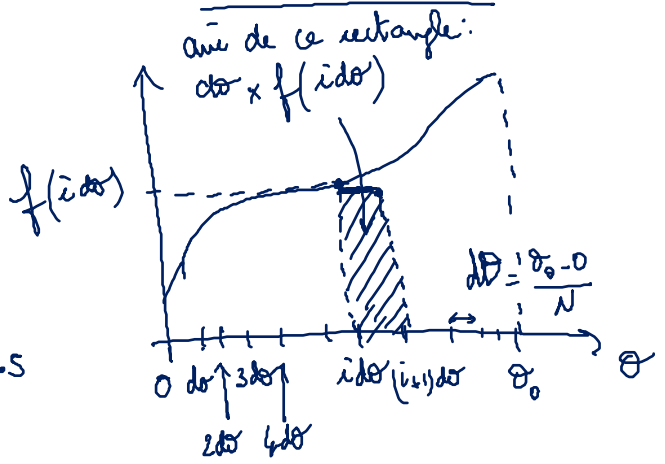 aire de ce rectangle:
dθ × f(idθ)
f(idθ)
dθ = θ₀-0 / N
.5
0 dθ 3dθ idθ (i+1)dθ θ₀ θ
2dθ 4dθ